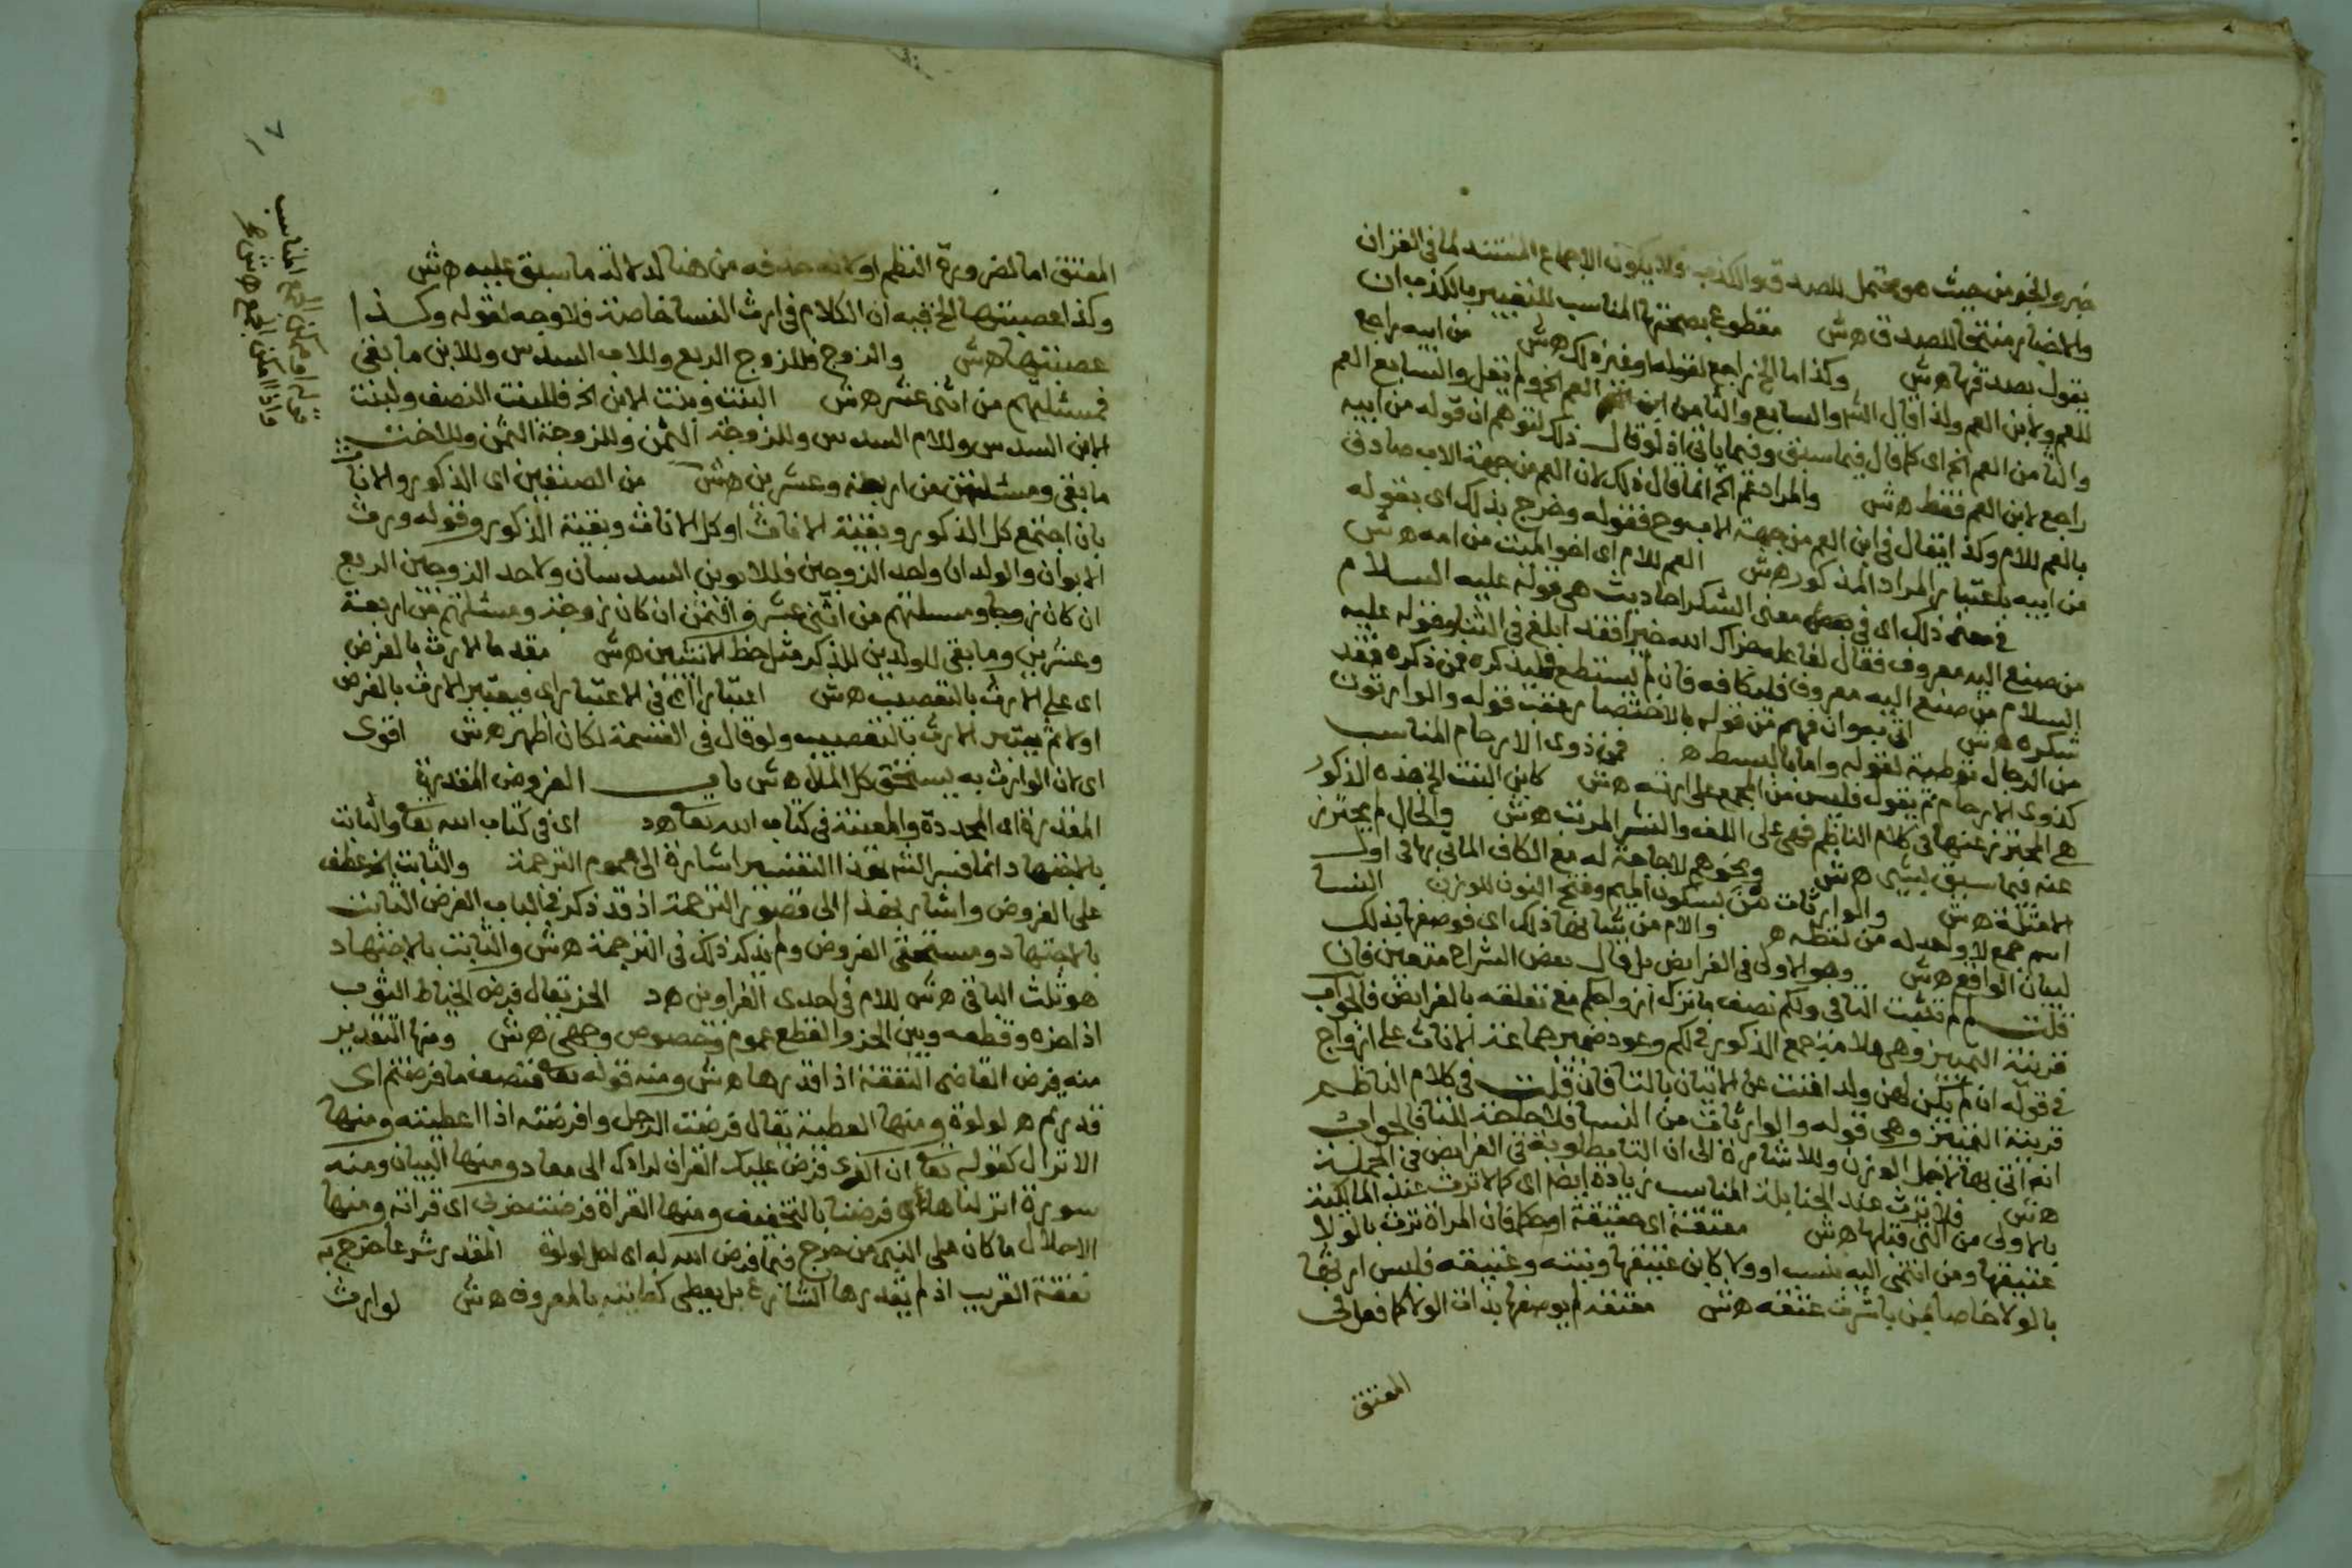 خبر والخبر من حيث هو محتمل للصدق والكذب ولا يكون الاجماع المستند لما في القران
والاخبار منتجا للصدق هش مقطوع بصحتها المناسب للتعبير بالكذب ان
يقول بصدقها هش وكذا ما الخ راجع لقوله او غير ذلك هش من ابيه راجع
للعم ولابن العم ولذا قال الش والسابع والثامن ابن العم الخ ولم يقل والسابع العم
والثامن العم الخ اي كما قال فيما سبق وفيما ياتي اذ لو قال ذلك لتوهم ان قوله من ابيه
راجع لابن العم فقط هش والمراد عم الخ انما قال ذلك لان العم من جهة الاب صادق
بالعم للام وكذا يقال في ابن العم من جهة الاب وح فقوله وخرج بذلك اي بقوله
من ابيه باعتبار المراد المذكور هش العم للام اي اخو الميت من امه هش
في معنى ذلك اي في معنى الشكر احاديث هي قوله عليه السلام
من صنع اليه معروف فقال لفاعله جزاك الله خيرا فقد ابلغ في الثنا وقوله عليه
السلام من صنع اليه معروف فليكافه فان لم يستطع فليذكره فمن ذكره فقد
شكره هش اتى بعوان فهم من قوله بالاختصار عقب قوله والوارثون
من الرجال توطية لقوله واما بالبسط ه فمن ذوي الارحام المناسب
كذوي الارحام ثم يقول فليس من المجمع على ارثه هش كابن البنت الخ هذه الذكور
هي المحترز عنها في كلام الناظم فهي على اللف والنشر المرتب هش والخال لم يحترز
عنه فيما سبق بشي هش ونحوهم لا حاجة له مع الكاف الماتي بها في اول
الامثلة هش والوارثات من بسكون الميم وفتح النون للوزن النسا
اسم جمع لا واحد له من لفظه ه والام من شانها ذلك اي فوصفها بذلك
لبيان الواقع هش وهو الاولى في الفرايض بل قال بعض الشراح متعين فان
قلت لم لم تثبت التا في ولكم نصف ما ترك ازواجكم مع تعلقه بالفرايض فالجواب
قرينة التمييز وهي علامة جمع الذكور في لكم وعود ضمير جماعة الاناث على ازواج
في قوله ان لم يكن لهن ولد اغنت عن الاتيان بالتا فان قلت في كلام الناظم
قرينة التمييز وهي قوله والوارثات من النسا فلا حاجة للتا فالجواب
انه اتى بها لاجل الوزن وللاشارة الى ان التا مطلوبة في الفرايض في الجملة
هش فلا ترث عند الحنابلة المناسب زيادة ايضا اي كما لا ترث عند المالكية
بالاولى من التي قبلها هش معتقة اي حقيقة او حكما فان المراة ترث بالولا
عتيقها ومن انتمى اليه بنسب او ولا كابن عتيقها وبنته وعتيقه فليس ارثها
بالولا خاصا بمن باشرت عتقه هش معتقه لم يوصفها بذات الولا كما فعل في
المعتق
المعتق اما لضرورة النظم او لانه حذفه من هنا لدلالة ما سبق عليه هش
وكذا عصبتها الخ فيه ان الكلام في ارث النسا خاصة فلا وجه لقوله وكذا
عصبتها هش والزوج فللزوج الربع وللاب السدس وللابن ما بقي
فمسئلتهم من اثني عشر هش البنت وبنت الابن الخ فللبنت النصف ولبنت
الابن السدس وللام السدس وللزوجة الثمن وللزوجة الثمن وللاخت
ما بقي ومسئلتهن من اربعة وعشرين هش من الصنفين اي الذكور والاناث
بان اجتمع كل الذكور وبقية الاناث او كل الاناث وبقية الذكور وقوله ورث
الابوان والولدان واحد الزوجين فللابوين السدسان ولاحد الزوجين الربع
ان كان زوجا ومسئلتهم من اثني عشر والثمن ان كان زوجة ومسئلتهم من اربعة
وعشرين وما بقي للولدين للذكر مثل حظ الانثيين هش مقدما الارث بالفرض
اي على الارث بالتعصيب هش اعتبارا اي في الاعتبار اي فيعتبر الارث بالفرض
اولا ثم يعتبر الارث بالتعصيب ولو قال في القسمة لكان اظهر هش اقوى
اي لان الوارث به يستحق كل المال هش باب الفروض المقدرة
المقدرة اي المحددة والمعينة في كتاب الله تعا هد اي في كتاب الله تعا والثابت
بالاجتهاد انما فسر الش بهذا التفسير اشارة الى عموم الترجمة والثابت الخ عطف
على الفروض واشار بهذا الى قصور الترجمة اذ قد ذكر في الباب الفرض الثابت
بالاجتهاد ومستحقي الفروض ولم يذكر ذلك في الترجمة هش والثابت بالاجتهاد
هو ثلث الباقي هش للام في احدى الغراوين هد الحز يقال فرض الخياط الثوب
اذا حزه وقطعه وبين الحز والقطع عموم وخصوص وجهي هش ومنها التقدير
منه فرض القاضي النفقة اذا قدرها هش ومنه قوله تعا فنصف ما فرضتم اي
قدرتم ه لولوة ومنها العطية يقال فرضت الرجل وافرضته اذا اعطيته ومنها
الانزال كقوله تعا ان الذي فرض عليك القران لرادك الى معاد ومنها البيان ومنه
سورة انزلناها وفرضنا بالتخفيف ومنها القراة فرضت حزبي اي قراته ومنها
الاحلال ما كان على النبي من حرج فيما فرض الله له اي احل لولوة المقدر شرعا خرج به
نفقة القريب اذ لم يقدرها الشارع بل يعطي كفايته بالمعروف هش لوارث